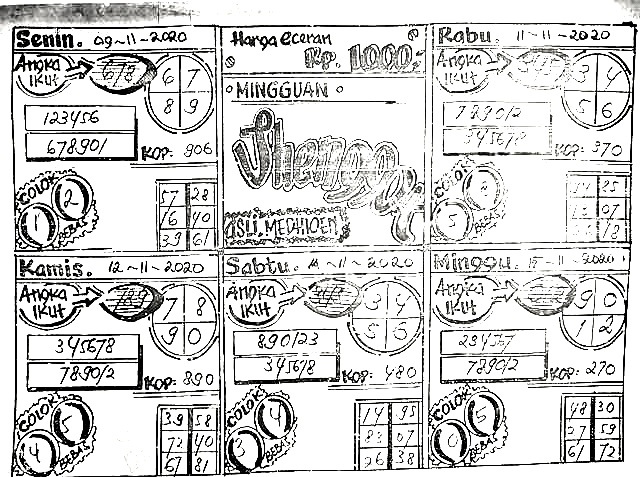 Senin. 09-11-2020
Angka
IKUT
678
6 7
8 9
123456
678901
KOP: 906
COLOK
1 2
BEBAS
57 28
16 40
39 61
Harga eceran
Rp. 1000,-
MINGGUAN
ASLI. MEDHIOEN
Rabu. 11-11-2020
Angka
IKUT
345
3 4
5 6
789012
345678
KOP: 370
COLOK
5 8
BEBAS
25
07
18
Kamis. 12-11-2020
Angka
IKUT
789
7 8
9 0
345678
789012
KOP: 890
COLOK
4 5
BEBAS
39 58
72 40
67 81
Sabtu. 14-11-2020
Angka
IKUT
3 4
5 6
890123
345678
KOP: 480
COLOK
3 4
BEBAS
14 95
83 07
26 38
Minggu. 15-11-2020
Angka
IKUT
9 0
1 2
789012
KOP: 270
COLOK
0 5
BEBAS
48 30
27 59
61 72